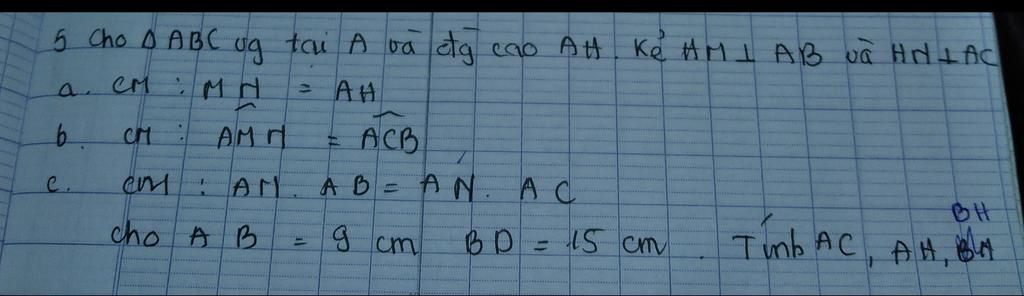 5 Cho Δ ABC vg tại A và đg cao AH. Kẻ HM ⊥ AB và HN ⊥ AC
a. CM : MN = AH
b. CM : AMN = ACB
c. CM : AM. AB = AN. AC
BH
cho AB = 9 cm BD = 15 cm. Tính AC, AH,